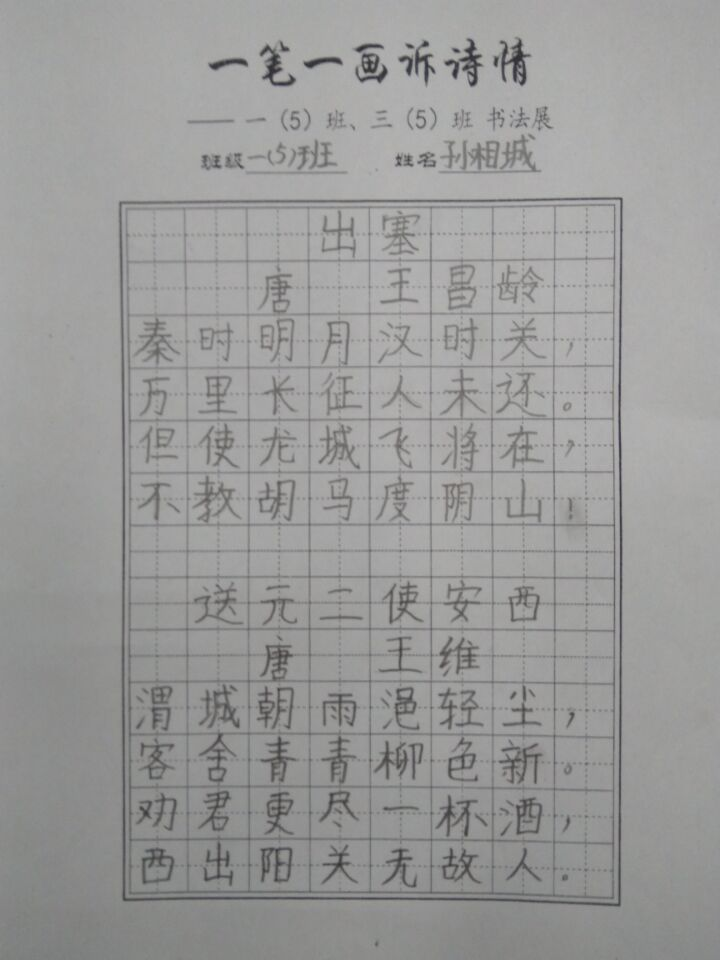 一笔一画诉诗情
—— 一（5）班、三（5）班 书法展
班级 一（5）班 姓名 孙相城
出塞
唐 王昌龄
秦时明月汉时关，
万里长征人未还。
但使龙城飞将在，
不教胡马度阴山！
送元二使安西
唐 王维
渭城朝雨浥轻尘，
客舍青青柳色新。
劝君更尽一杯酒，
西出阳关无故人。